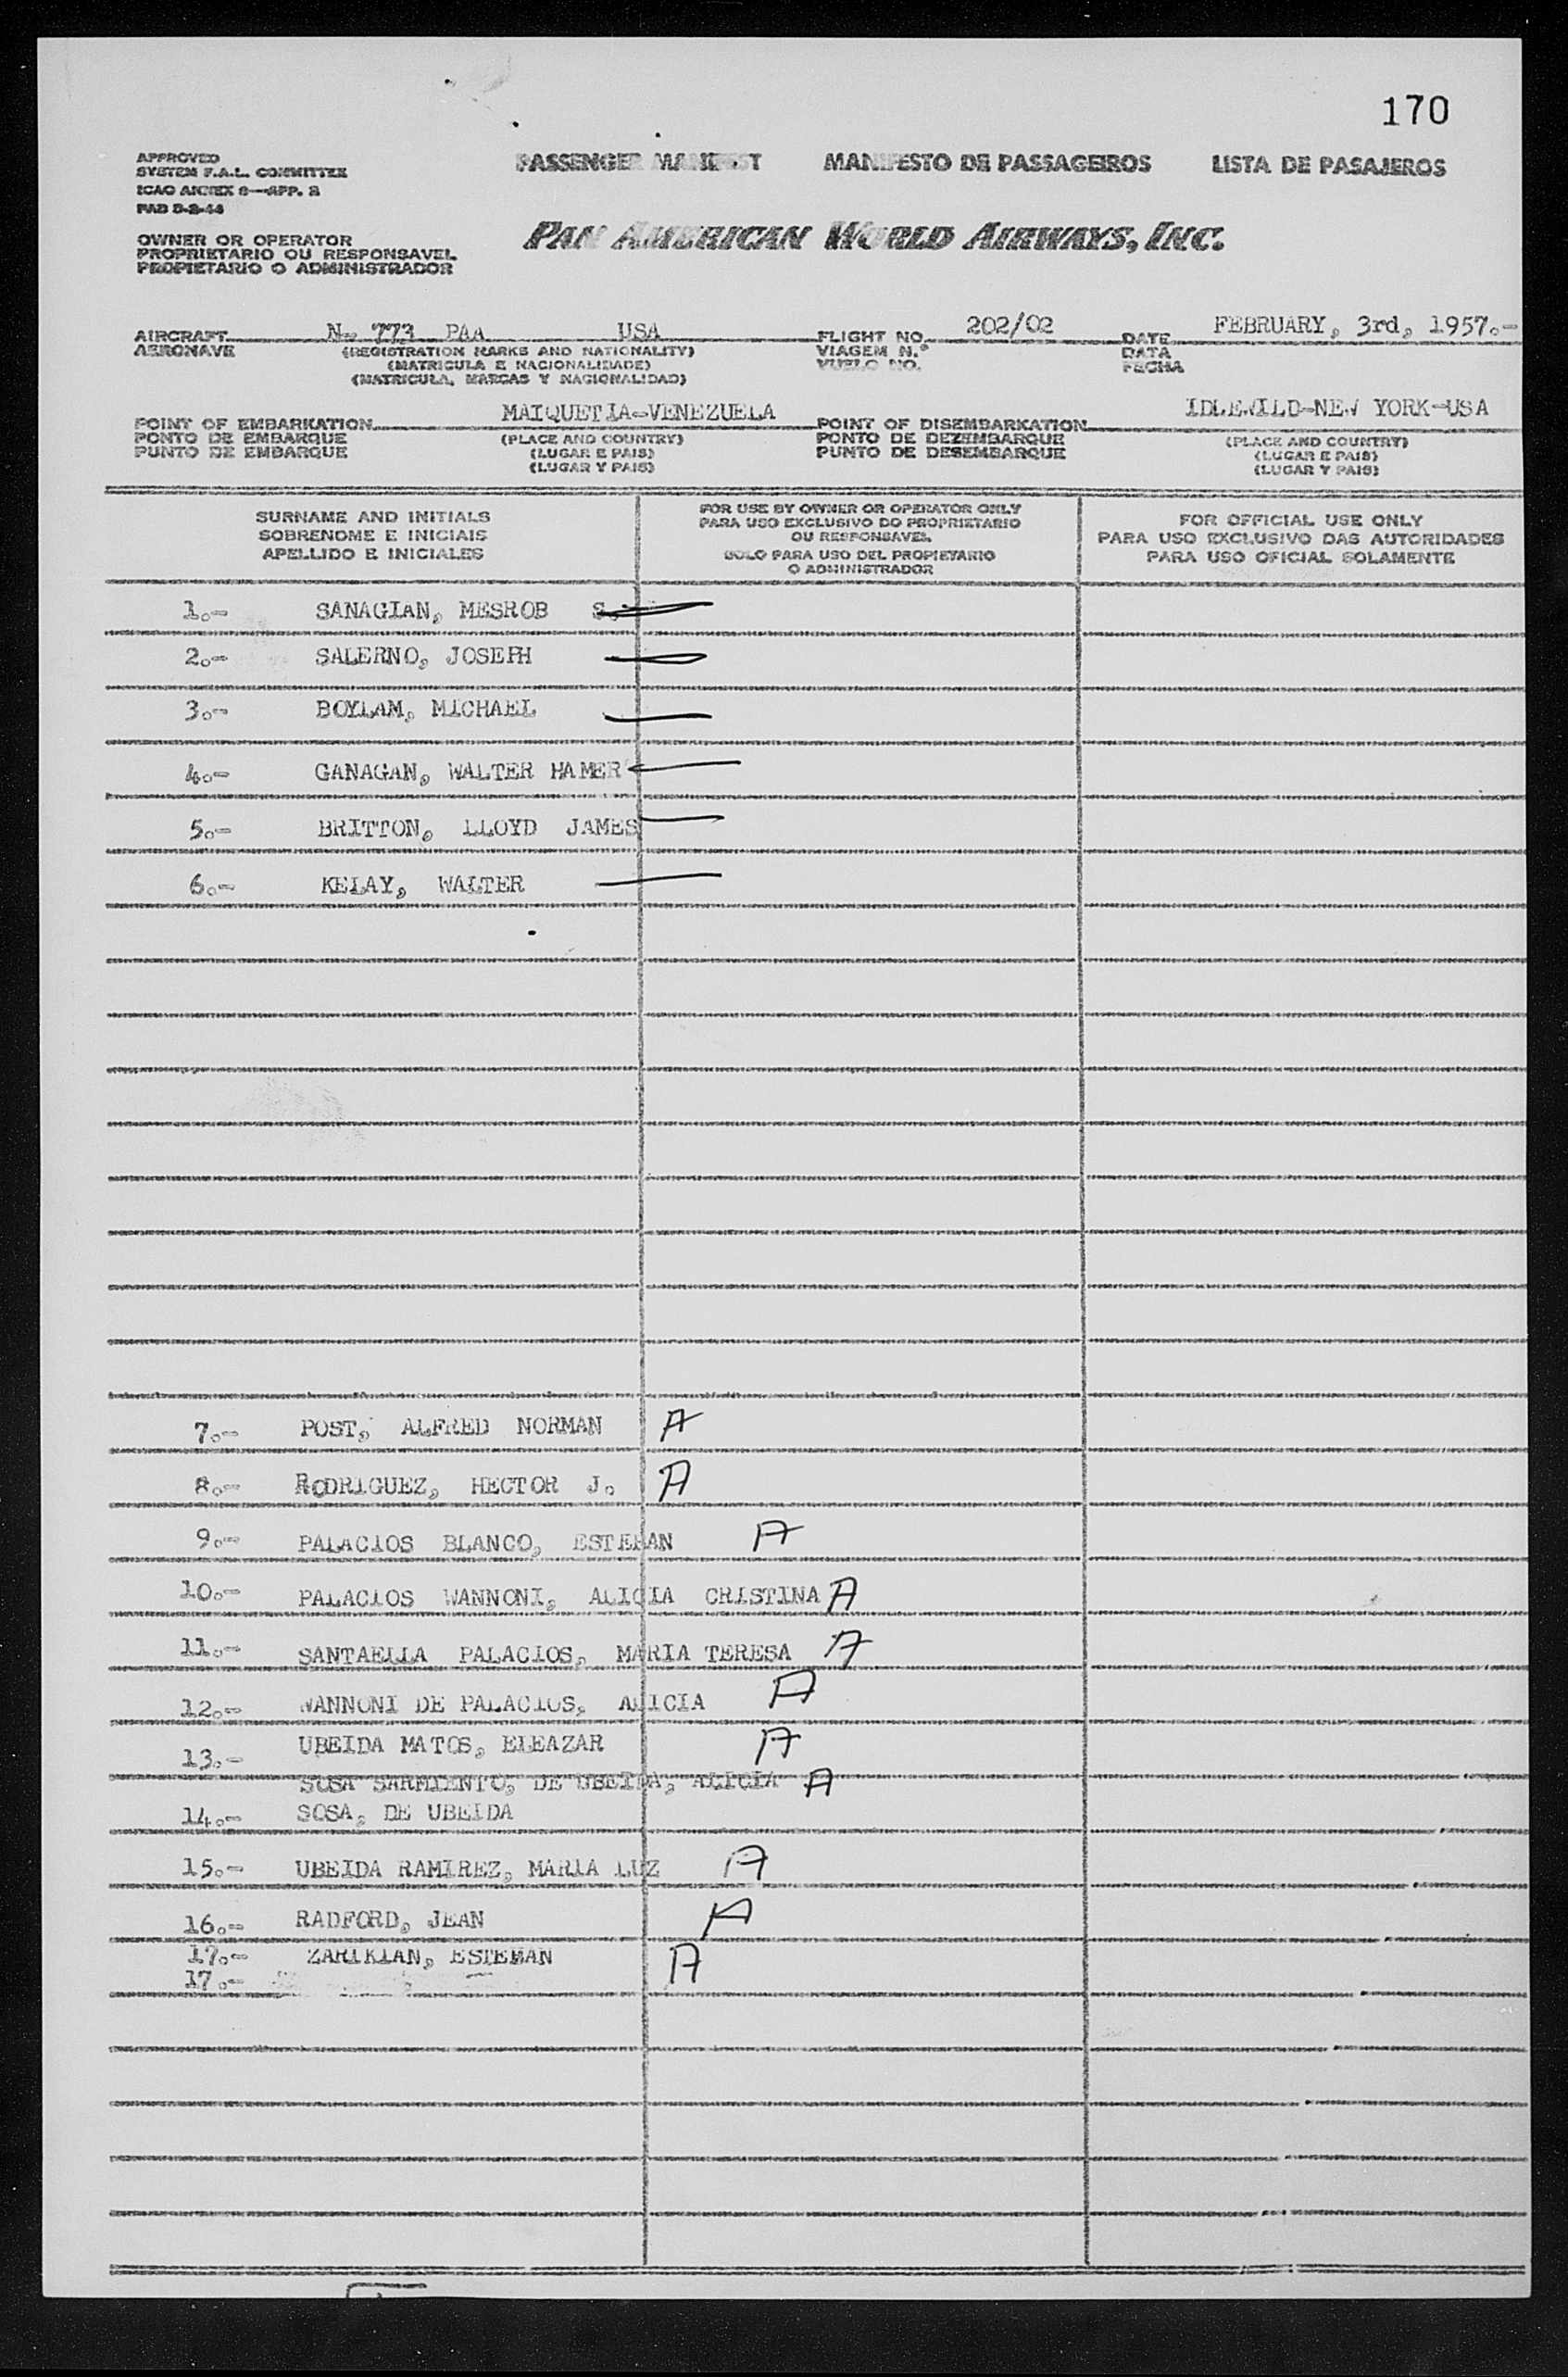 170
APPROVED
SYSTEM F.A.L. COMMITTEE
ICAO ANNEX 9—APP. 2
PAD 3-2-44
PASSENGER MANIFEST MANIFESTO DE PASSAGEIROS LISTA DE PASAJEROS
OWNER OR OPERATOR
PROPRIETARIO OU RESPONSAVEL
PROPIETARIO O ADMINISTRADOR
PAN AMERICAN WORLD AIRWAYS, INC.
AIRCRAFT N- 773 PAA USA FLIGHT NO. 202/02 DATE FEBRUARY, 3rd, 1957.-
AERONAVE (REGISTRATION MARKS AND NATIONALITY) VIAGEM N.º DATA
(MATRICULA E NACIONALIDADE) VUELO NO. FECHA
(MATRICULA, MARCAS Y NACIONALIDAD)
POINT OF EMBARKATION MAIQUETIA-VENEZUELA POINT OF DISEMBARKATION IDLEWILD-NEW YORK-USA
PONTO DE EMBARQUE (PLACE AND COUNTRY) PONTO DE DEZEMBARQUE (PLACE AND COUNTRY)
PUNTO DE EMBARQUE (LUGAR E PAIS) PUNTO DE DESEMBARQUE (LUGAR E PAIS)
(LUGAR Y PAIS) (LUGAR Y PAIS)
SURNAME AND INITIALS
SOBRENOME E INICIAIS
APELLIDO E INICIALES
FOR USE BY OWNER OR OPERATOR ONLY
PARA USO EXCLUSIVO DO PROPRIETARIO
OU RESPONSAVEL
SOLO PARA USO DEL PROPIETARIO
O ADMINISTRADOR
FOR OFFICIAL USE ONLY
PARA USO EXCLUSIVO DAS AUTORIDADES
PARA USO OFICIAL SOLAMENTE
1.- SANAGIAN, MESROB S.
2.- SALERNO, JOSEPH
3.- BOYLAM, MICHAEL
4.- GANAGAN, WALTER HAMER
5.- BRITTON, LLOYD JAMES
6.- KELAY, WALTER
7.- POST, ALFRED NORMAN A
8.- RODRIGUEZ, HECTOR J. A
9.- PALACIOS BLANCO, ESTEBAN A
10.- PALACIOS WANNONI, ALICIA CRISTINA A
11.- SANTAELLA PALACIOS, MARIA TERESA A
12.- WANNONI DE PALACIOS, ALICIA A
13.- UBEIDA MATOS, ELEAZAR A
SOSA SARMIENTO, DE UBEIDA, ALICIA A
14.- SOSA, DE UBEIDA
15.- UBEIDA RAMIREZ, MARIA LUZ A
16.- RADFORD, JEAN A
17.- ZARIKIAN, ESTEBAN A
17.-